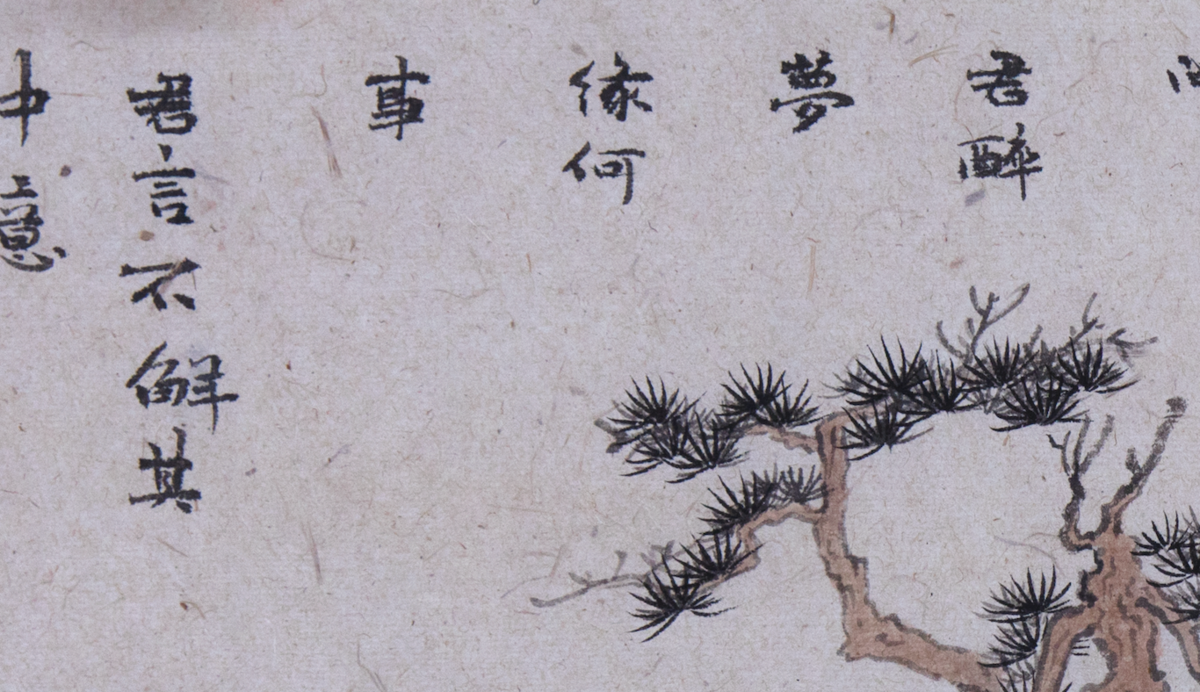 君醉
夢
緣何
事
君言不解其
中意